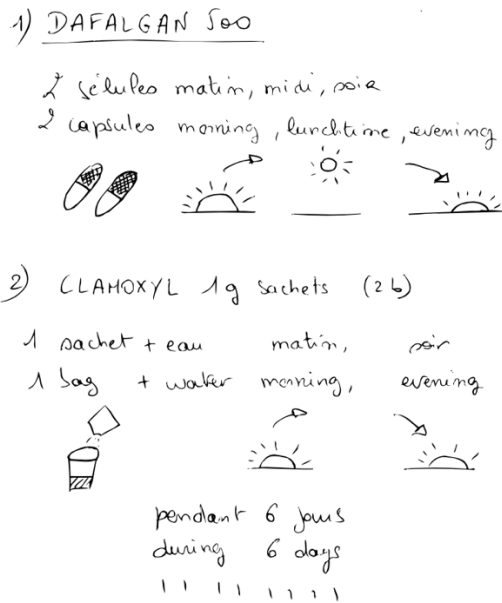 1) DAFALGAN 500
2 gélules matin, midi, soir
2 capsules morning, lunchtime, evening
2) CLAMOXYL 1g sachets (2b)
1 sachet + eau matin, soir
1 bag + water morning, evening
pendant 6 jours
during 6 days